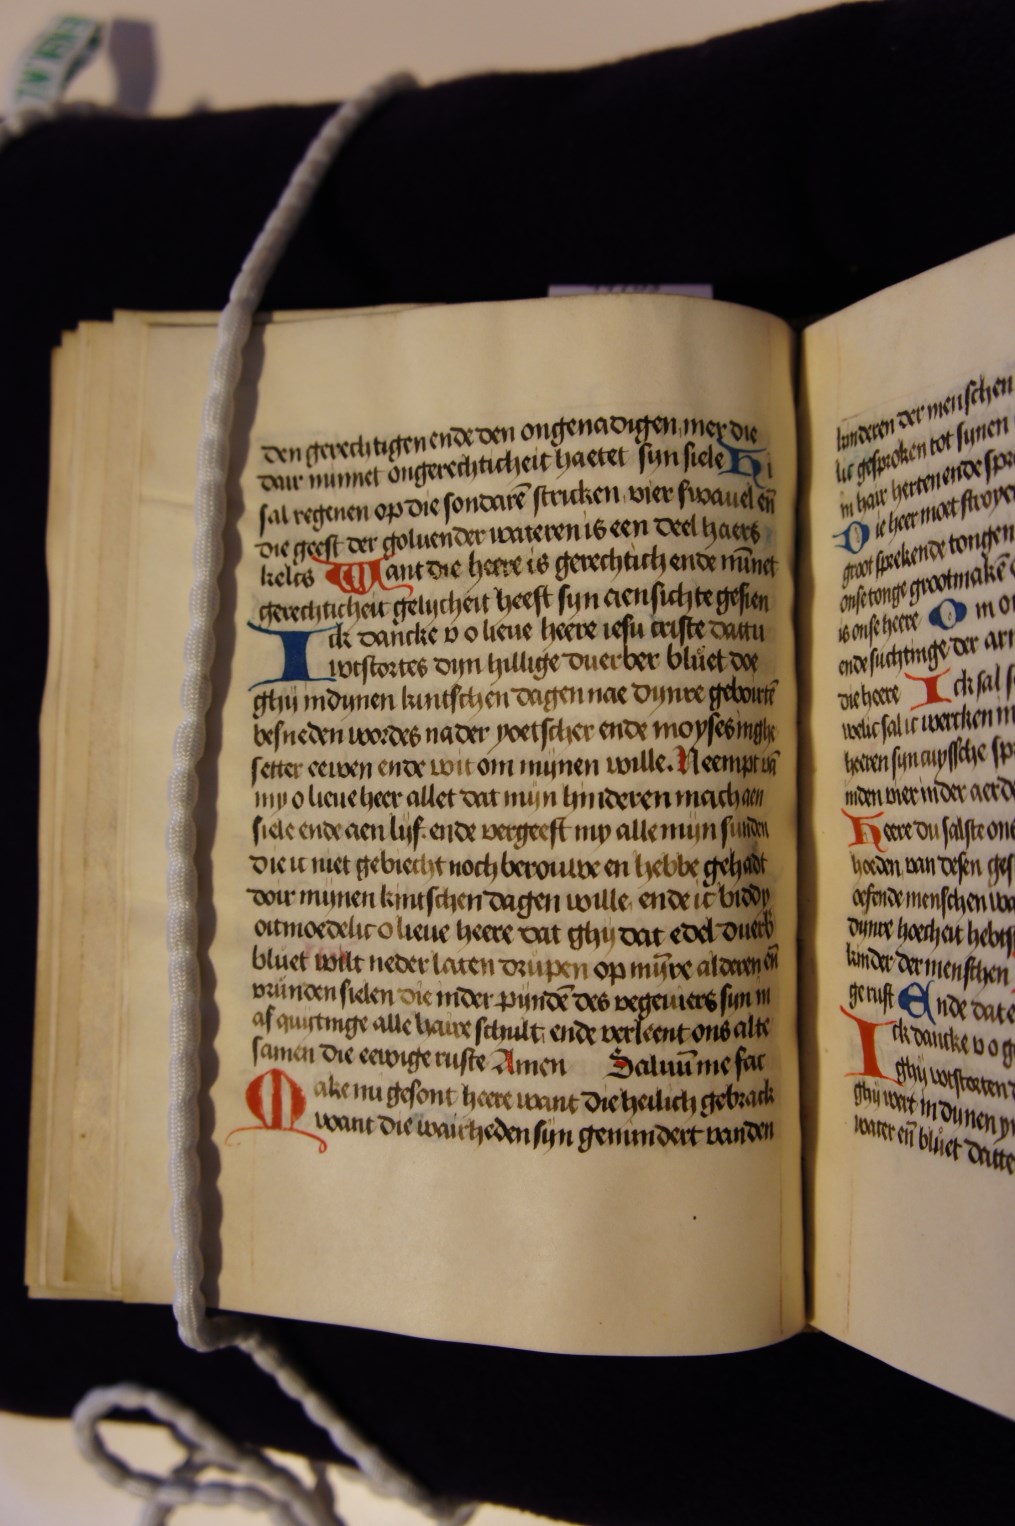 den gerechtigen ende den ongenadigen mer die
dair minnet ongerechticheit haetet syn siele Hi
sal regenen op die sondarē stricken vier swauel eñ
die geest der goluender wateren is een deel haers
kelcs Want die heere is gerechtich ende mīnet
gerechticheit gelijcheit heeft syn aensichte gesien
Ick dancke v o lieue heere iesu criste dattu
wtstortes dijn hillige duerber bluet doe
ghij in dynen kintschen dagen nae dynre gebourtē
besneden wordes na der yoetscher ende moyses inghe
setter eewen ende wit om mijnen wille. Neempt vā
my o lieue heer allet dat mijn hinderen mach aen
siele ende aen lijf. ende vergeeft my alle mijn sunden
die ic niet gebiecht noch berouwe en hebbe gehadt
doir mijnen kintschen dagen wille, ende ic bidde
oitmoedelic o lieue heere dat ghij dat edel duerb
bluet wilt neder laten drupen op mijre alderen eñ
vrunden sielen die in der pijndē des vegeuiers sijn in
af quijtinge alle haire schult, ende verleent ons alte
samen die eewige ruste Amen Saluū me fac
Make nu gesont heere want die heilich gebrack
want die wairheden sijn gemindert vanden
kinderen der menschen
lic gesproken tot synen
in hair herten ende spra
Die heer moet stroye
groot sprekende tongen
onse tonge grootmakē
is onse heere Om
ende suchtinge der arm
die heere Ick sal s
welic sal ic wercken in
heeren syn cuyssche sp
inden vier inder aerde
Heere du salste ons
hoeden van desen ges
oefende menschen wa
dynre hoecheit hebts
kinder der menschen
ge rust Ende date
Ick dancke v o g
ghij wtstorten
ghij wert in dynen
water eñ bluet datte